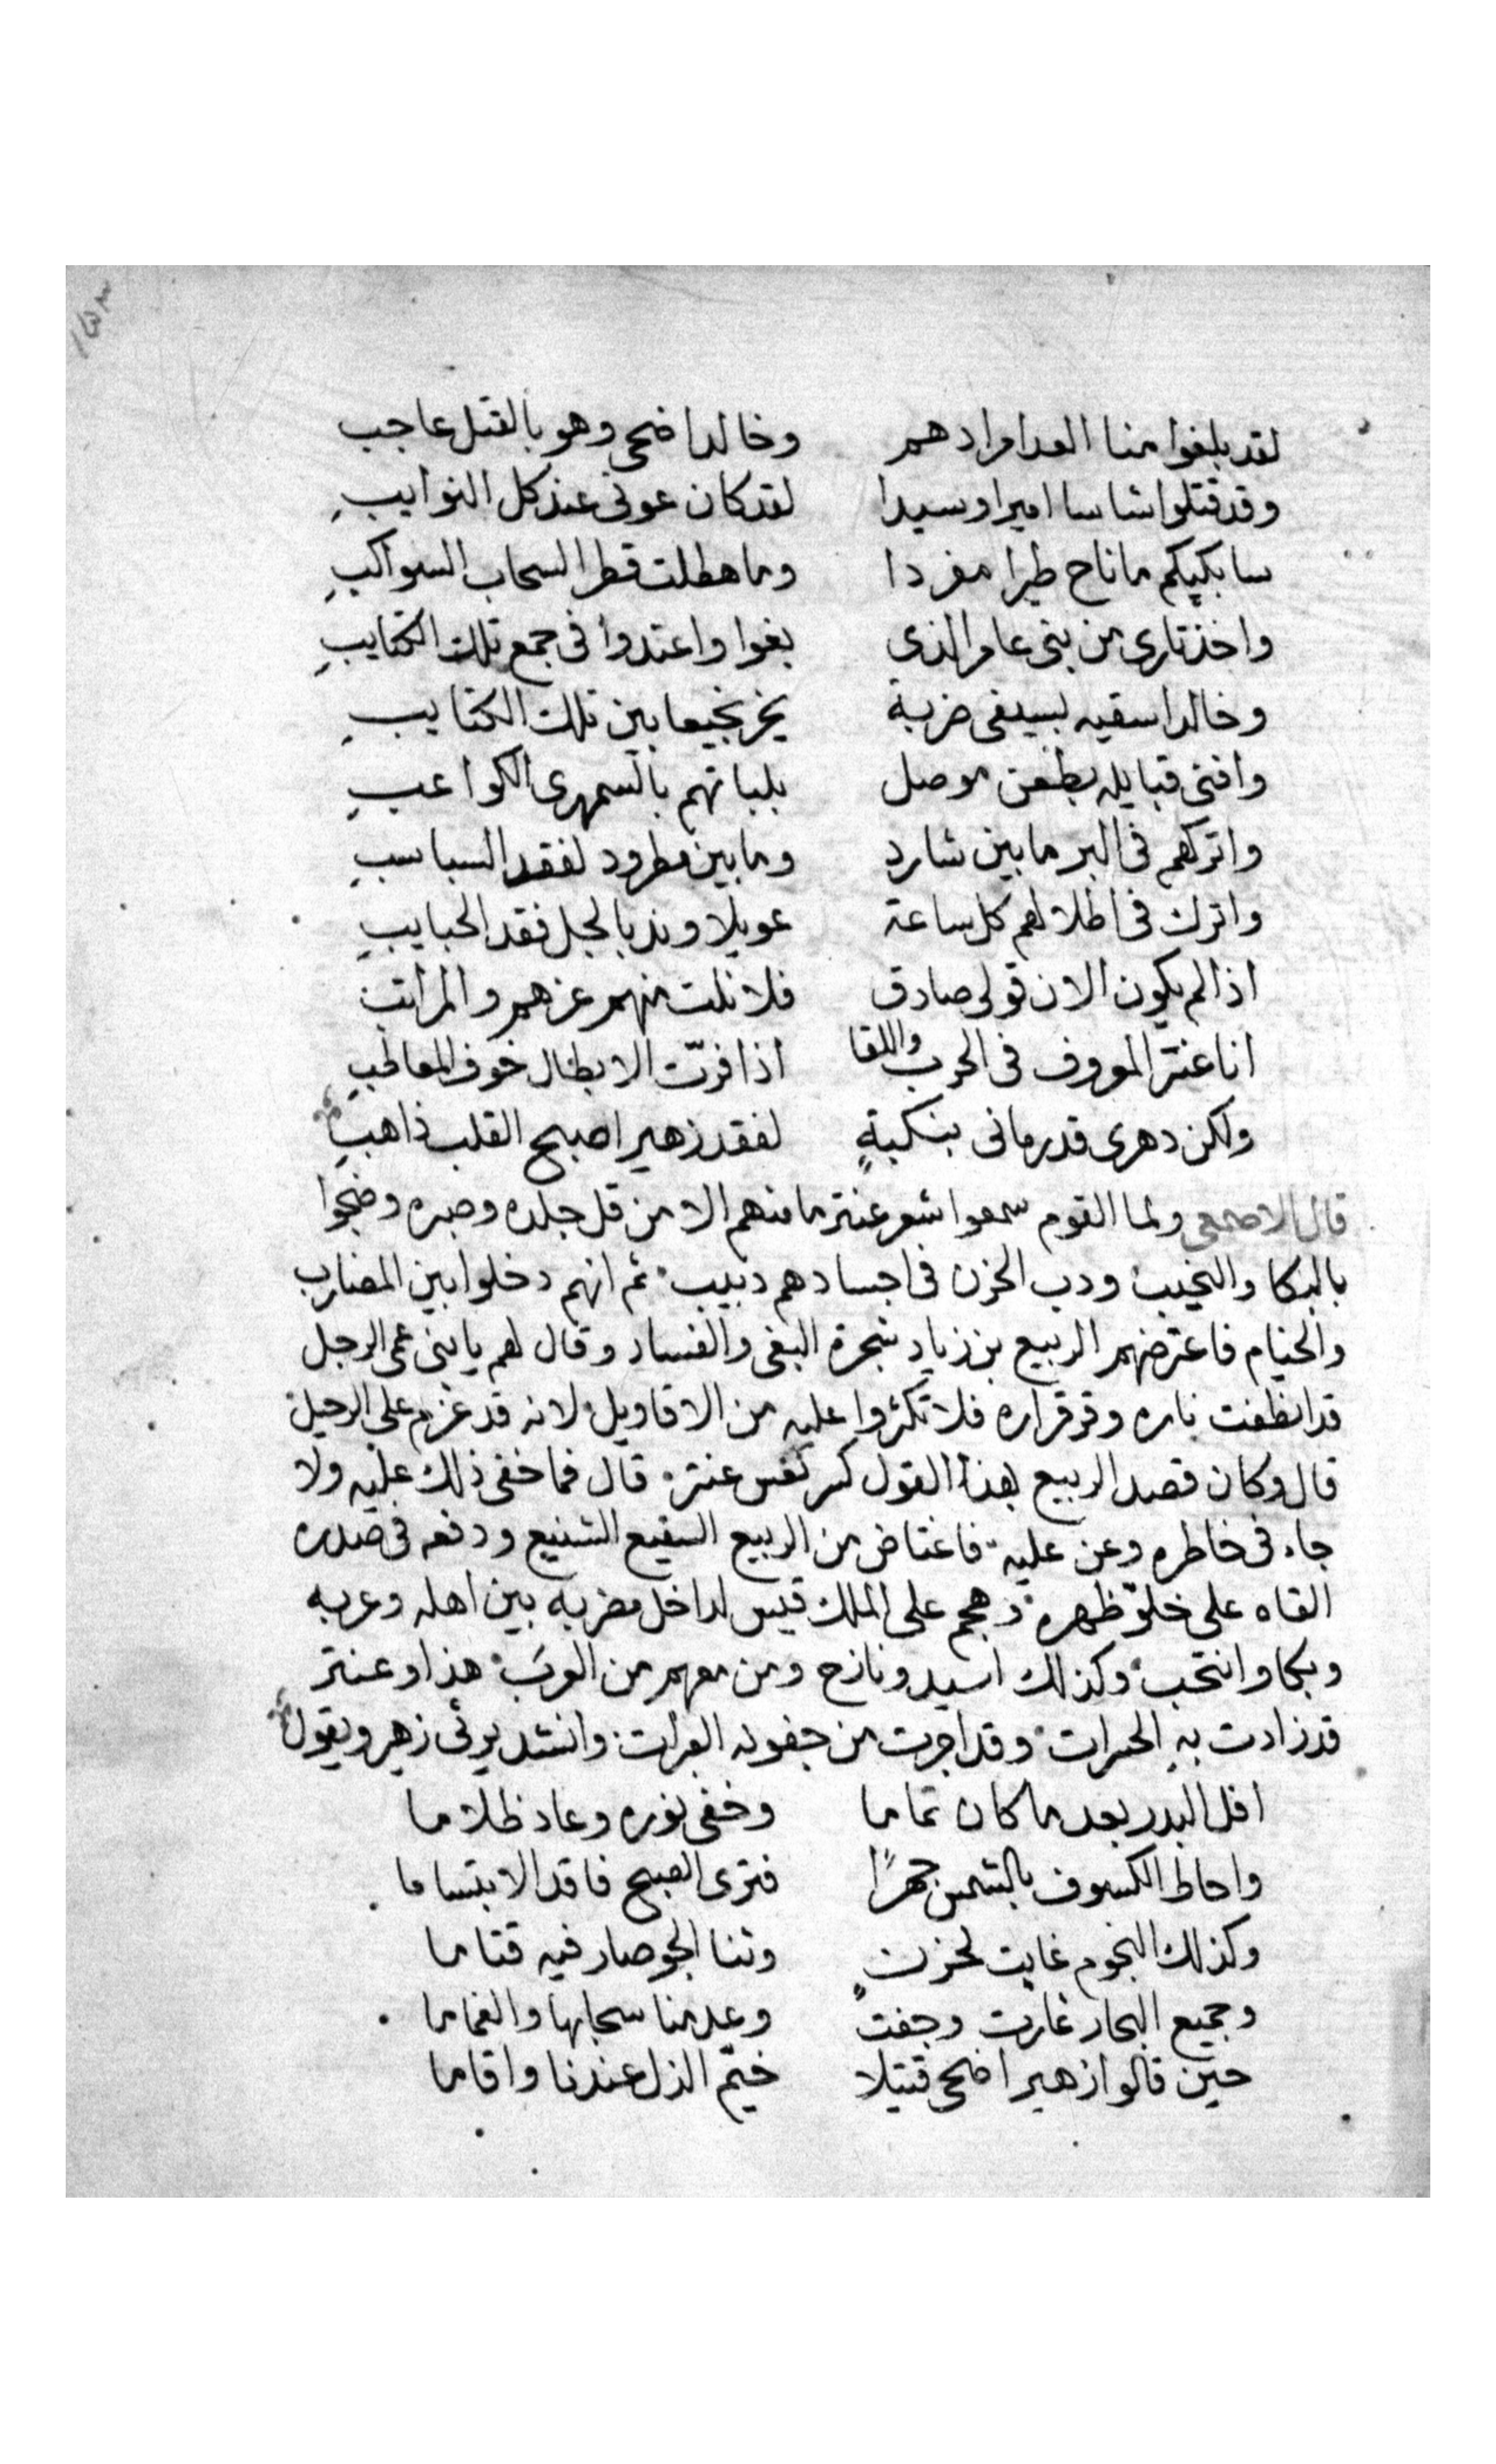 لقد بلغوا منا العدا مرادهم وخالد اضحى وهو بالقتل عاجب
وقد قتلوا شاسا اميرا وسيدا لقد كان عونى عند كل النوايبِ
سابكيكم ما ناح طيرا مغردا وما هطلت قطر السحاب السواكبِ
واخذ تارى من بنى عامر الذى بغوا واعتدوا فى جمع تلك الكتايبِ
وخالد اسقيه بسيفى ضربة يخر نجيعا بين تلك الكتايبِ
وافنى قبايله بطعن موصل بلباتهم بالسمهرى الكواعبِ
واتركهم فى البر ما بين شارد وما بين مطرود لفقد السباسبِ
واترك فى اطلالهم كل ساعة عويلا وندبا لجل فقد الحبايبِ
اذا لم يكون الان قولى صادق فلا نلت منهم عزهم والمراتب
انا عنتر المعروف فى الحرب واللقا اذا فرّت الابطال خوف المعاطبِ
ولكن دهرى قد رمانى بنكبةٍ لفقد زهير اصبح القلب ذاهبِ
قال الاصمعى ولما القوم سمعوا شعر عنتر ما منهم الا من قل جلده وصبره وضجوا
بالبكا والنحيب ودب الحزن فى اجسادهم دبيب ثم انهم دخلوا بين المضارب
والخيام فاعترضهم الربيع بن زياد شجرة البغى والفساد وقال لهم يا بنى عمى الرجل
قد انطفت ناره وقر قراره فلا تكثروا عليه من الاقاويل لانه قد عزم على الرحيل
قال وكان قصد الربيع بهذا القول كسر نفس عنتر قال فما خفى ذلك عليه ولا
جاء فى خاطره وعن عليه فاغتاض من الربيع السقيع الشنيع ودفعه فى صدره
القاه على خلوّ ظهره وهجم على الملك قيس لداخل مضربه بين اهله وعربه
وبكا وانتحب وكذلك اسيد ونازح ومن معهم من العرب هذا وعنتر
قد زادت به الحسرات وقد اجرت من جفونه العبرات وانشد يرثى زهير ويقول
افل البدر بعد ما كان تماما وخفى نوره وعاد ظلاما
واحاط الكسوف بالشمس جهرًا فترى الصبح فاقد الابتساما
وكذلك النجوم غابت لحزنٍ وثنا الجو صار فيه قتاما
وجميع البحار غارت وجفت وعدمنا سحابها والغماما
حين قالوا زهير اضحى قتيلا خيّم الذل عندنا واقاما